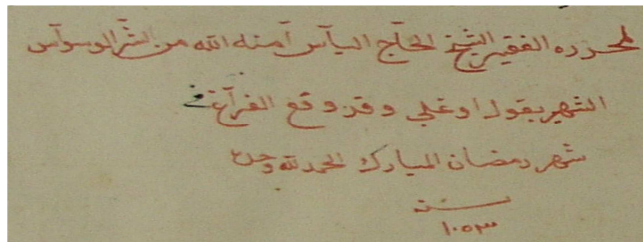 لمحرره الفقير الشيخ الحآج اليآس آمنه الله من الشر الوسوآس
الشهير بقول اوغلي وقد وقع الفرآغ في
شهر رمضان المبارك الحمد لله وحده
سنة
١٠٥٣